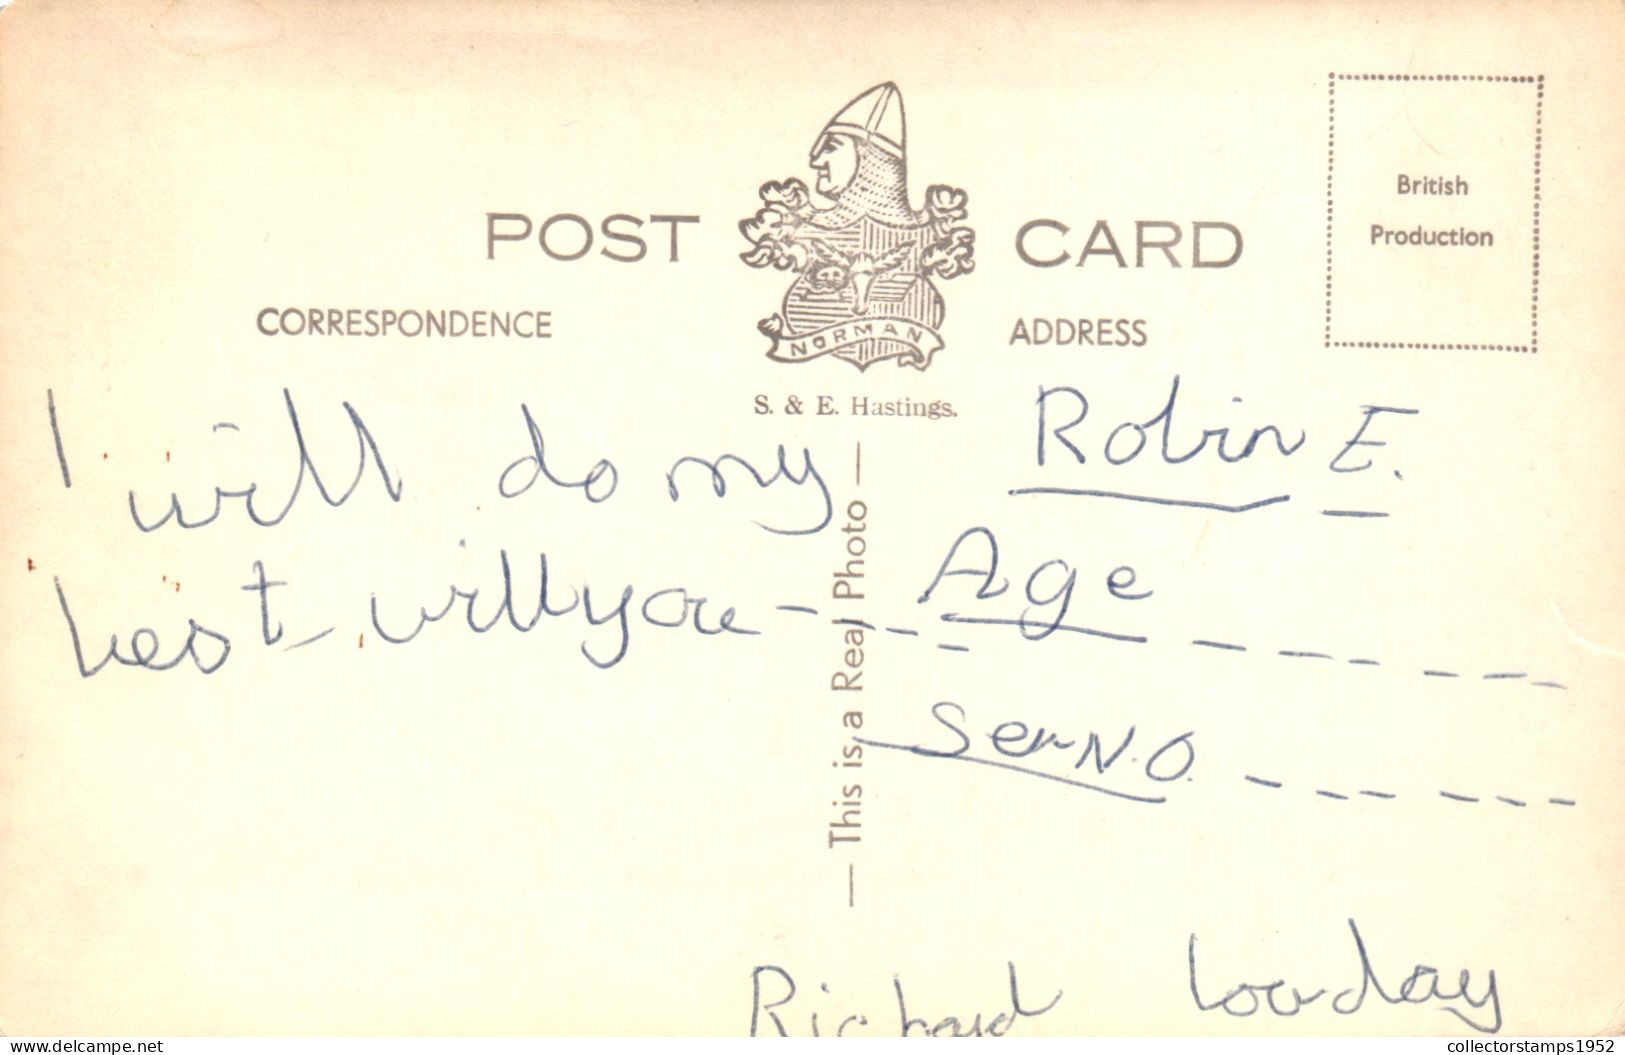 POST CARD
British
Production
CORRESPONDENCE
ADDRESS
NORMAN
S. & E. Hastings.
I will do my
best will you
Robin E.
Age
Ser N.O.
— This is a Real Photo —
Richard
delcampe.net
collectorstamps1952